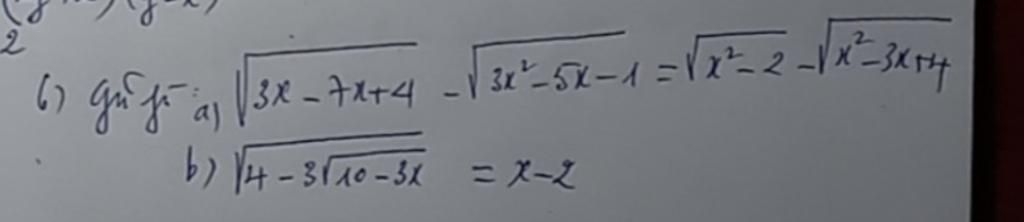 2
6) giải pt a) √(3x - 7x + 4) - √(3x² - 5x - 1) = √(x² - 2) - √(x² - 3x + 4)
b) √(4 - 3√(10 - 3x)) = x - 2